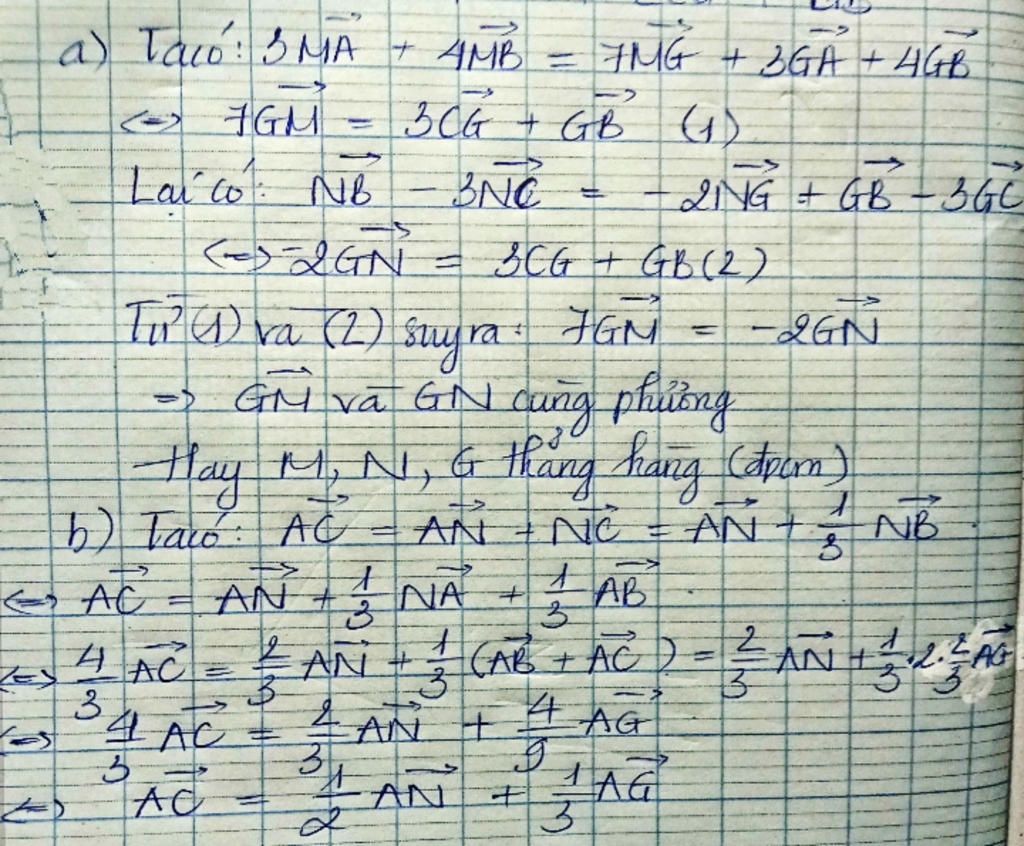 a) Ta có: 3MA⃗ + 4MB⃗ = 7MG⃗ + 3GA⃗ + 4GB⃗
<=> 7GM⃗ = 3CG⃗ + GB⃗ (1)
Lại có: NB⃗ - 3NC⃗ = -2NG⃗ + GB⃗ - 3GC⃗
<=> -2GN⃗ = 3CG + GB (2)
Từ (1) và (2) suy ra: 7GM⃗ = -2GN⃗
=> GM⃗ và GN cùng phương
Hay M, N, G thẳng hàng (đpcm)
b) Ta có: AC⃗ = AN⃗ + NC⃗ = AN⃗ + 1/3 NB⃗
<=> AC⃗ = AN⃗ + 1/3 NA⃗ + 1/3 AB⃗
<=> 4/3 AC⃗ = 2/3 AN⃗ + 1/3 (AB⃗ + AC⃗) = 2/3 AN⃗ + 1/3 . 2 . 2/3 AG⃗
<=> 4/3 AC⃗ = 2/3 AN⃗ + 4/9 AG⃗
<=> AC⃗ = 1/2 AN⃗ + 1/3 AG⃗